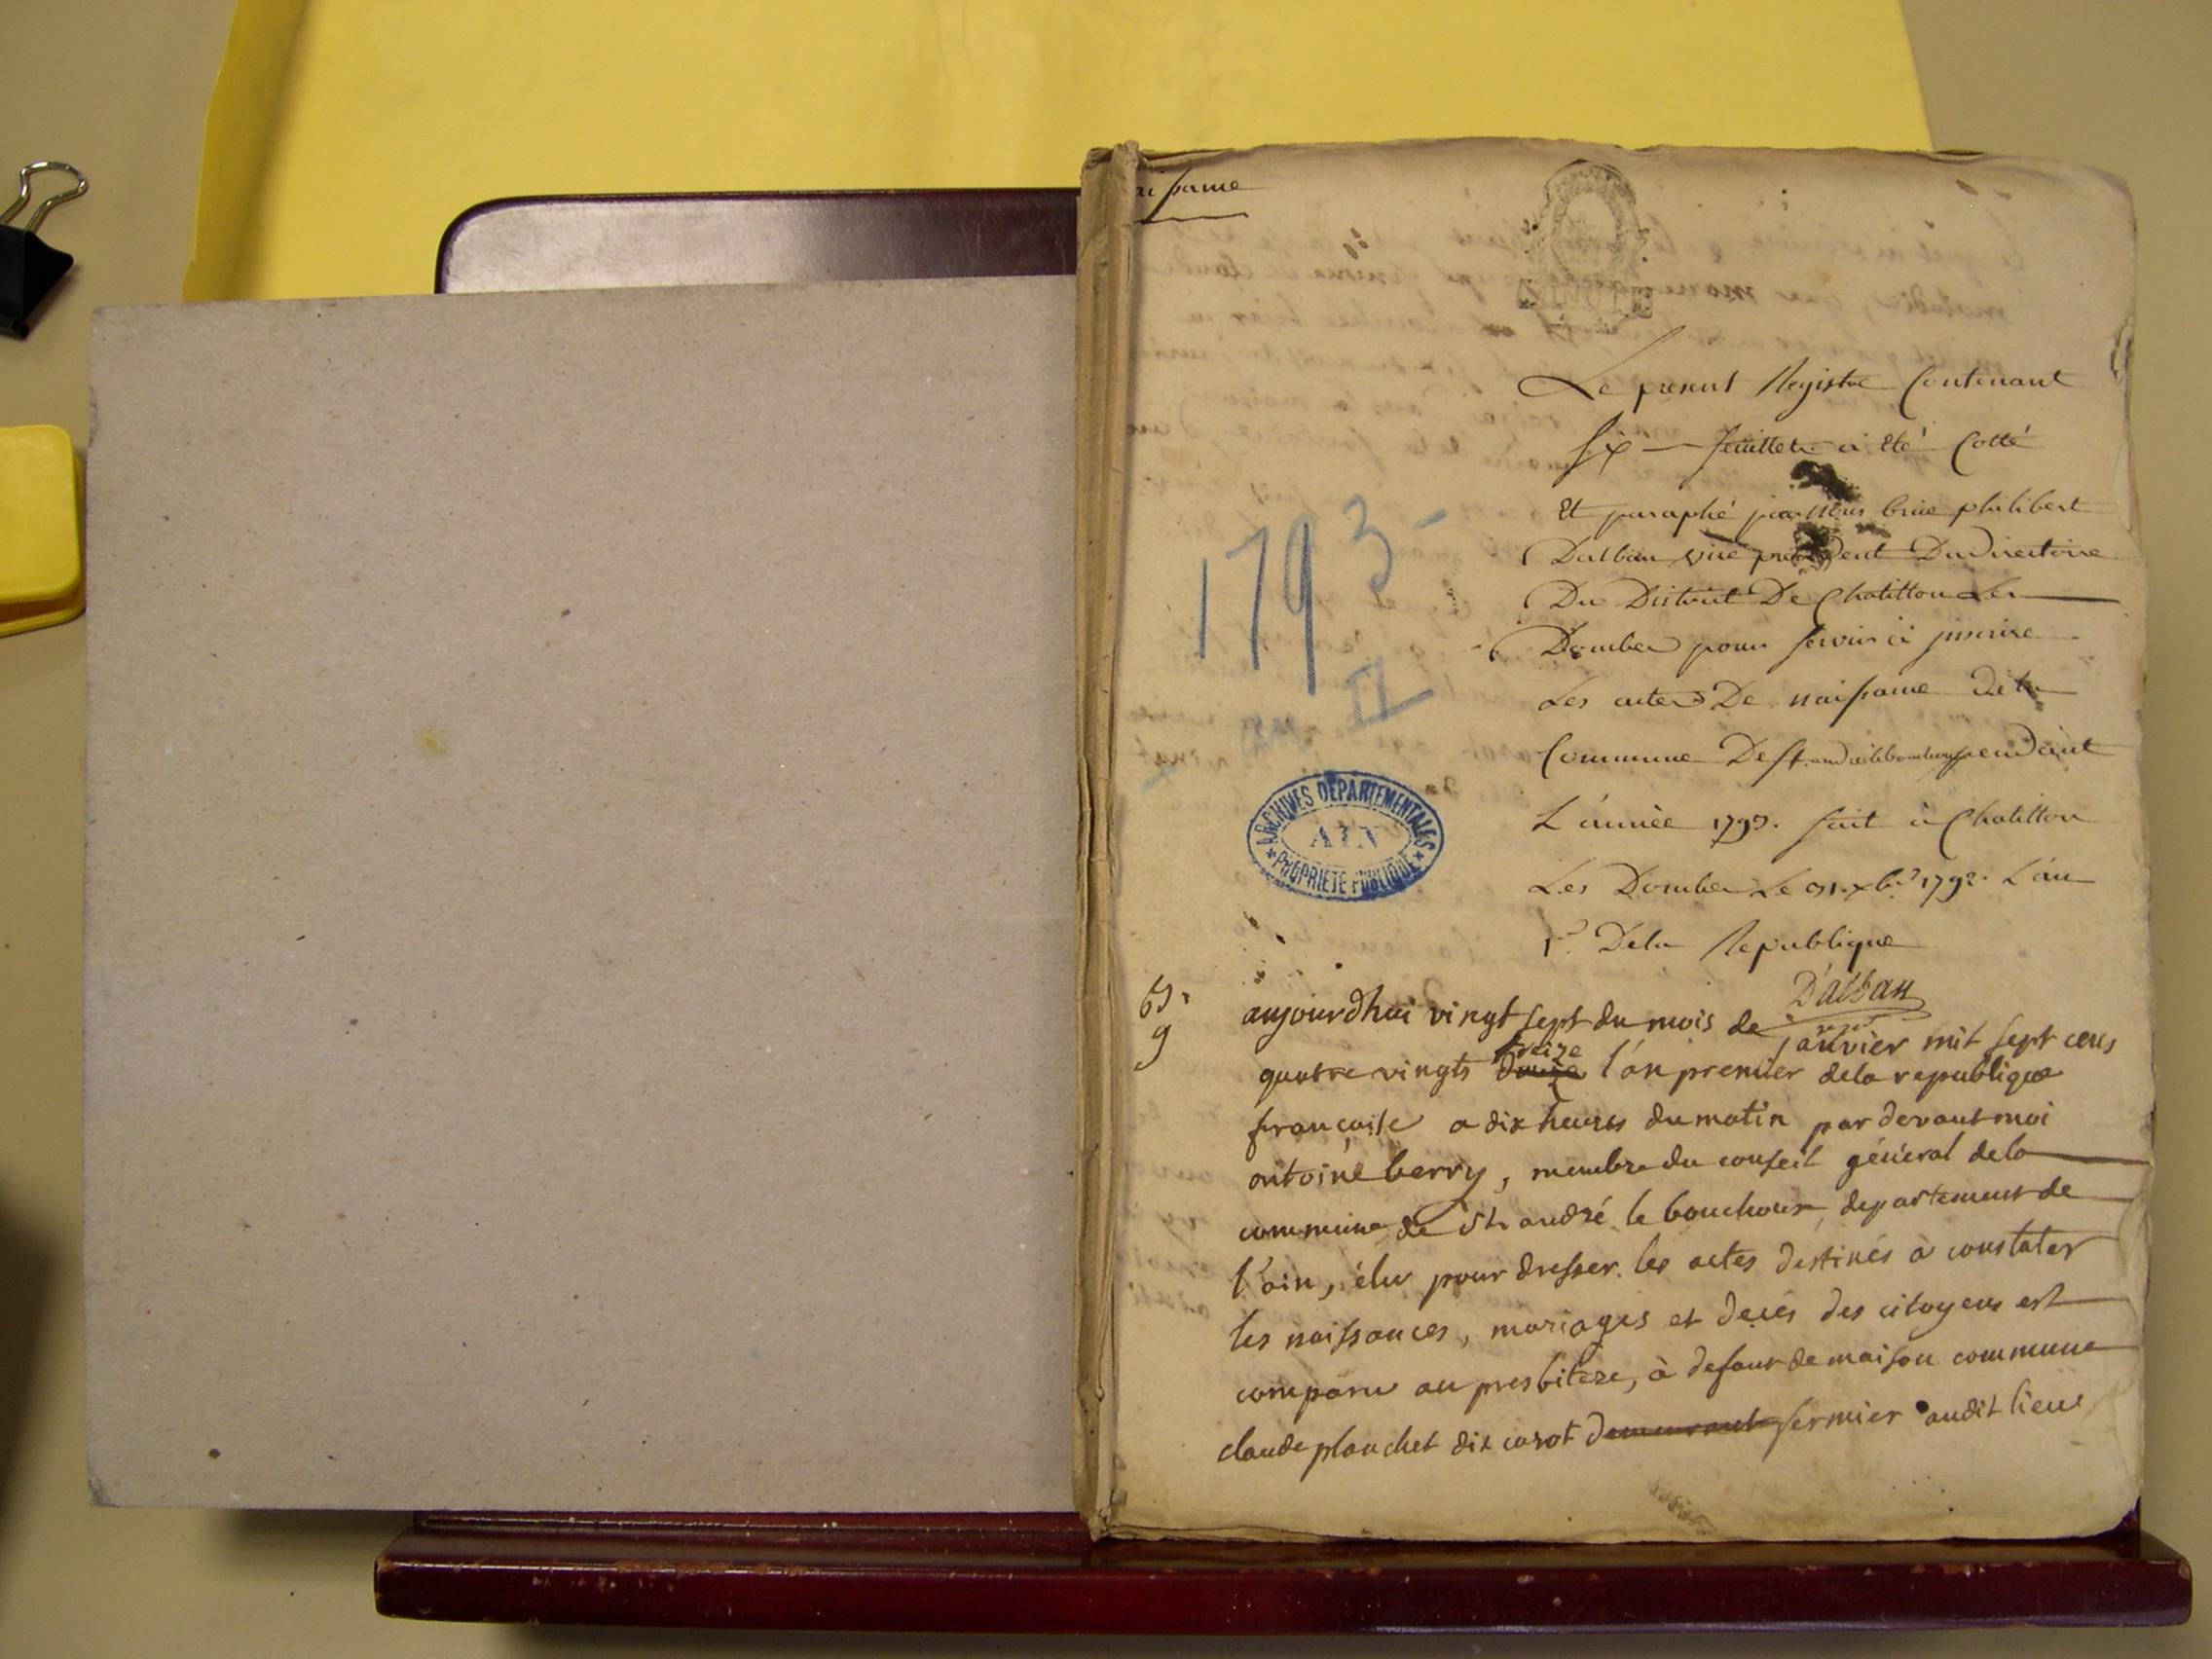 aissance
Le present Registre Contenant
six feuillets a été Cotté
Et paraphé par nous brice philibert
Dalban vice président Du Directoire
Du District De Chatillon Les
Dombes pour servir à inscrire
Les actes De naissance De la
Commune De st. andré le bouchoux pendant
L'année 1793. fait à Chatillon
Les Dombes Le 31. xbre 1792. L'an
1er De la Republique
D'alban
1793 -
an II
ARCHIVES DEPARTEMENTALES
AIN
PROPRIETE PUBLIQUE
aujourdhui vingt sept du mois de janvier mil sept cens
quatre vingts douze treize l'an premier dela republique
françaises a dix heures du matin par devant moi
antoine berry, membre du conseil général dela
commune de St. andré le bouchoux, departement de
l'ain, élu pour dresser les actes destinés à constater
les naissances, mariages et decés des citoyens est
comparu au presbitere, à defaut de maison commune
claude planchet dit carot demeurant fermier audit lieu